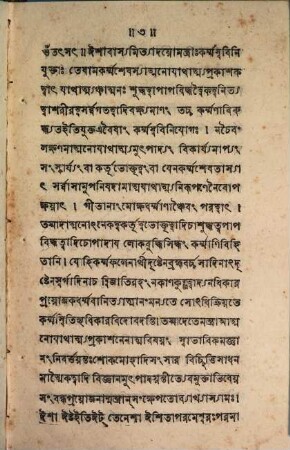 ॥ ৩ ॥
ওঁ তৎসৎ॥ ঈশাবাস্যমিত্যাদয়োমন্ত্রাঃকর্ম্মস্ববিনি
যুক্তাঃ তেষামকর্ম্মশেষস্যাত্মনোযাথাত্ম্যপ্রকাশক
ত্বাৎ যাথাত্ম্যঞ্চাত্মনঃ শুদ্ধত্বাপাপবিদ্ধত্বৈকত্বনিত্য
ত্বাশরীরত্বসর্ব্বগতত্বাদিবক্ষ্যমাণং তচ্চ কর্ম্মণাবিরু
ধ্যতইতিযুক্তএবৈষাং কর্ম্মস্ববিনিয়োগঃ। নহ্যেবং
লক্ষণমাত্মনোযাথাত্ম্যমুৎপাদ্যং বিকার্য্যমাপ্যং
সংস্কার্য্যং বা কর্ত্তৃভোক্তৃরূপং বা যেনকর্ম্মশেষতাস্যা
ৎ সর্ব্বাসামুপনিষদামাত্মযাথাত্ম্যনিরূপণেনৈবোপ
ক্ষয়াৎ। গীতানাং মোক্ষধর্ম্মাণাঞ্চৈবং পরত্বাৎ।
তস্মাদাত্মনোঽনেকত্বকর্ত্তৃত্বভোক্তৃত্বাদিচাশুদ্ধত্বপাপ
বিদ্ধত্বাদিচোপাদায় লোকবুদ্ধিসিদ্ধং কর্ম্মাণিবিহি
তানি। যোহিকর্ম্মফলেনার্থীদৃষ্টেনব্রহ্মবর্চ্চসাদিনাঽদৃ
ষ্টেনস্বর্গাদিনাচ দ্বিজাতিরহং নকাণকুব্জত্বাদ্যনধিকার
প্রয়োজকধর্ম্মবানিত্যাত্মানংমন্যতে সোঽধিক্রিয়তে
কর্ম্মস্বিতিহ্যধিকারবিদোবদন্তি। তস্মাদেতেমন্ত্রাআত্ম
নোযাথাত্ম্যপ্রকাশনেনাত্মবিষয়ং স্বাভাবিকমজ্ঞা
নংনিবর্ত্তয়ন্তঃশোকমোহাদিসংসার বিচ্ছিত্তিসাধন
মাত্মৈকত্বাদি বিজ্ঞানমুৎপাদয়ন্তীতি এবমুক্তাভিধেয়
সংবন্ধপ্রয়োজনান্মন্ত্রান্সংক্ষেপতোব্যাখ্যাস্যামঃ।
ঈশা ঈষ্টেইতীট্ তেনেশা ঈশিতাপরমেশ্বরঃপরমা